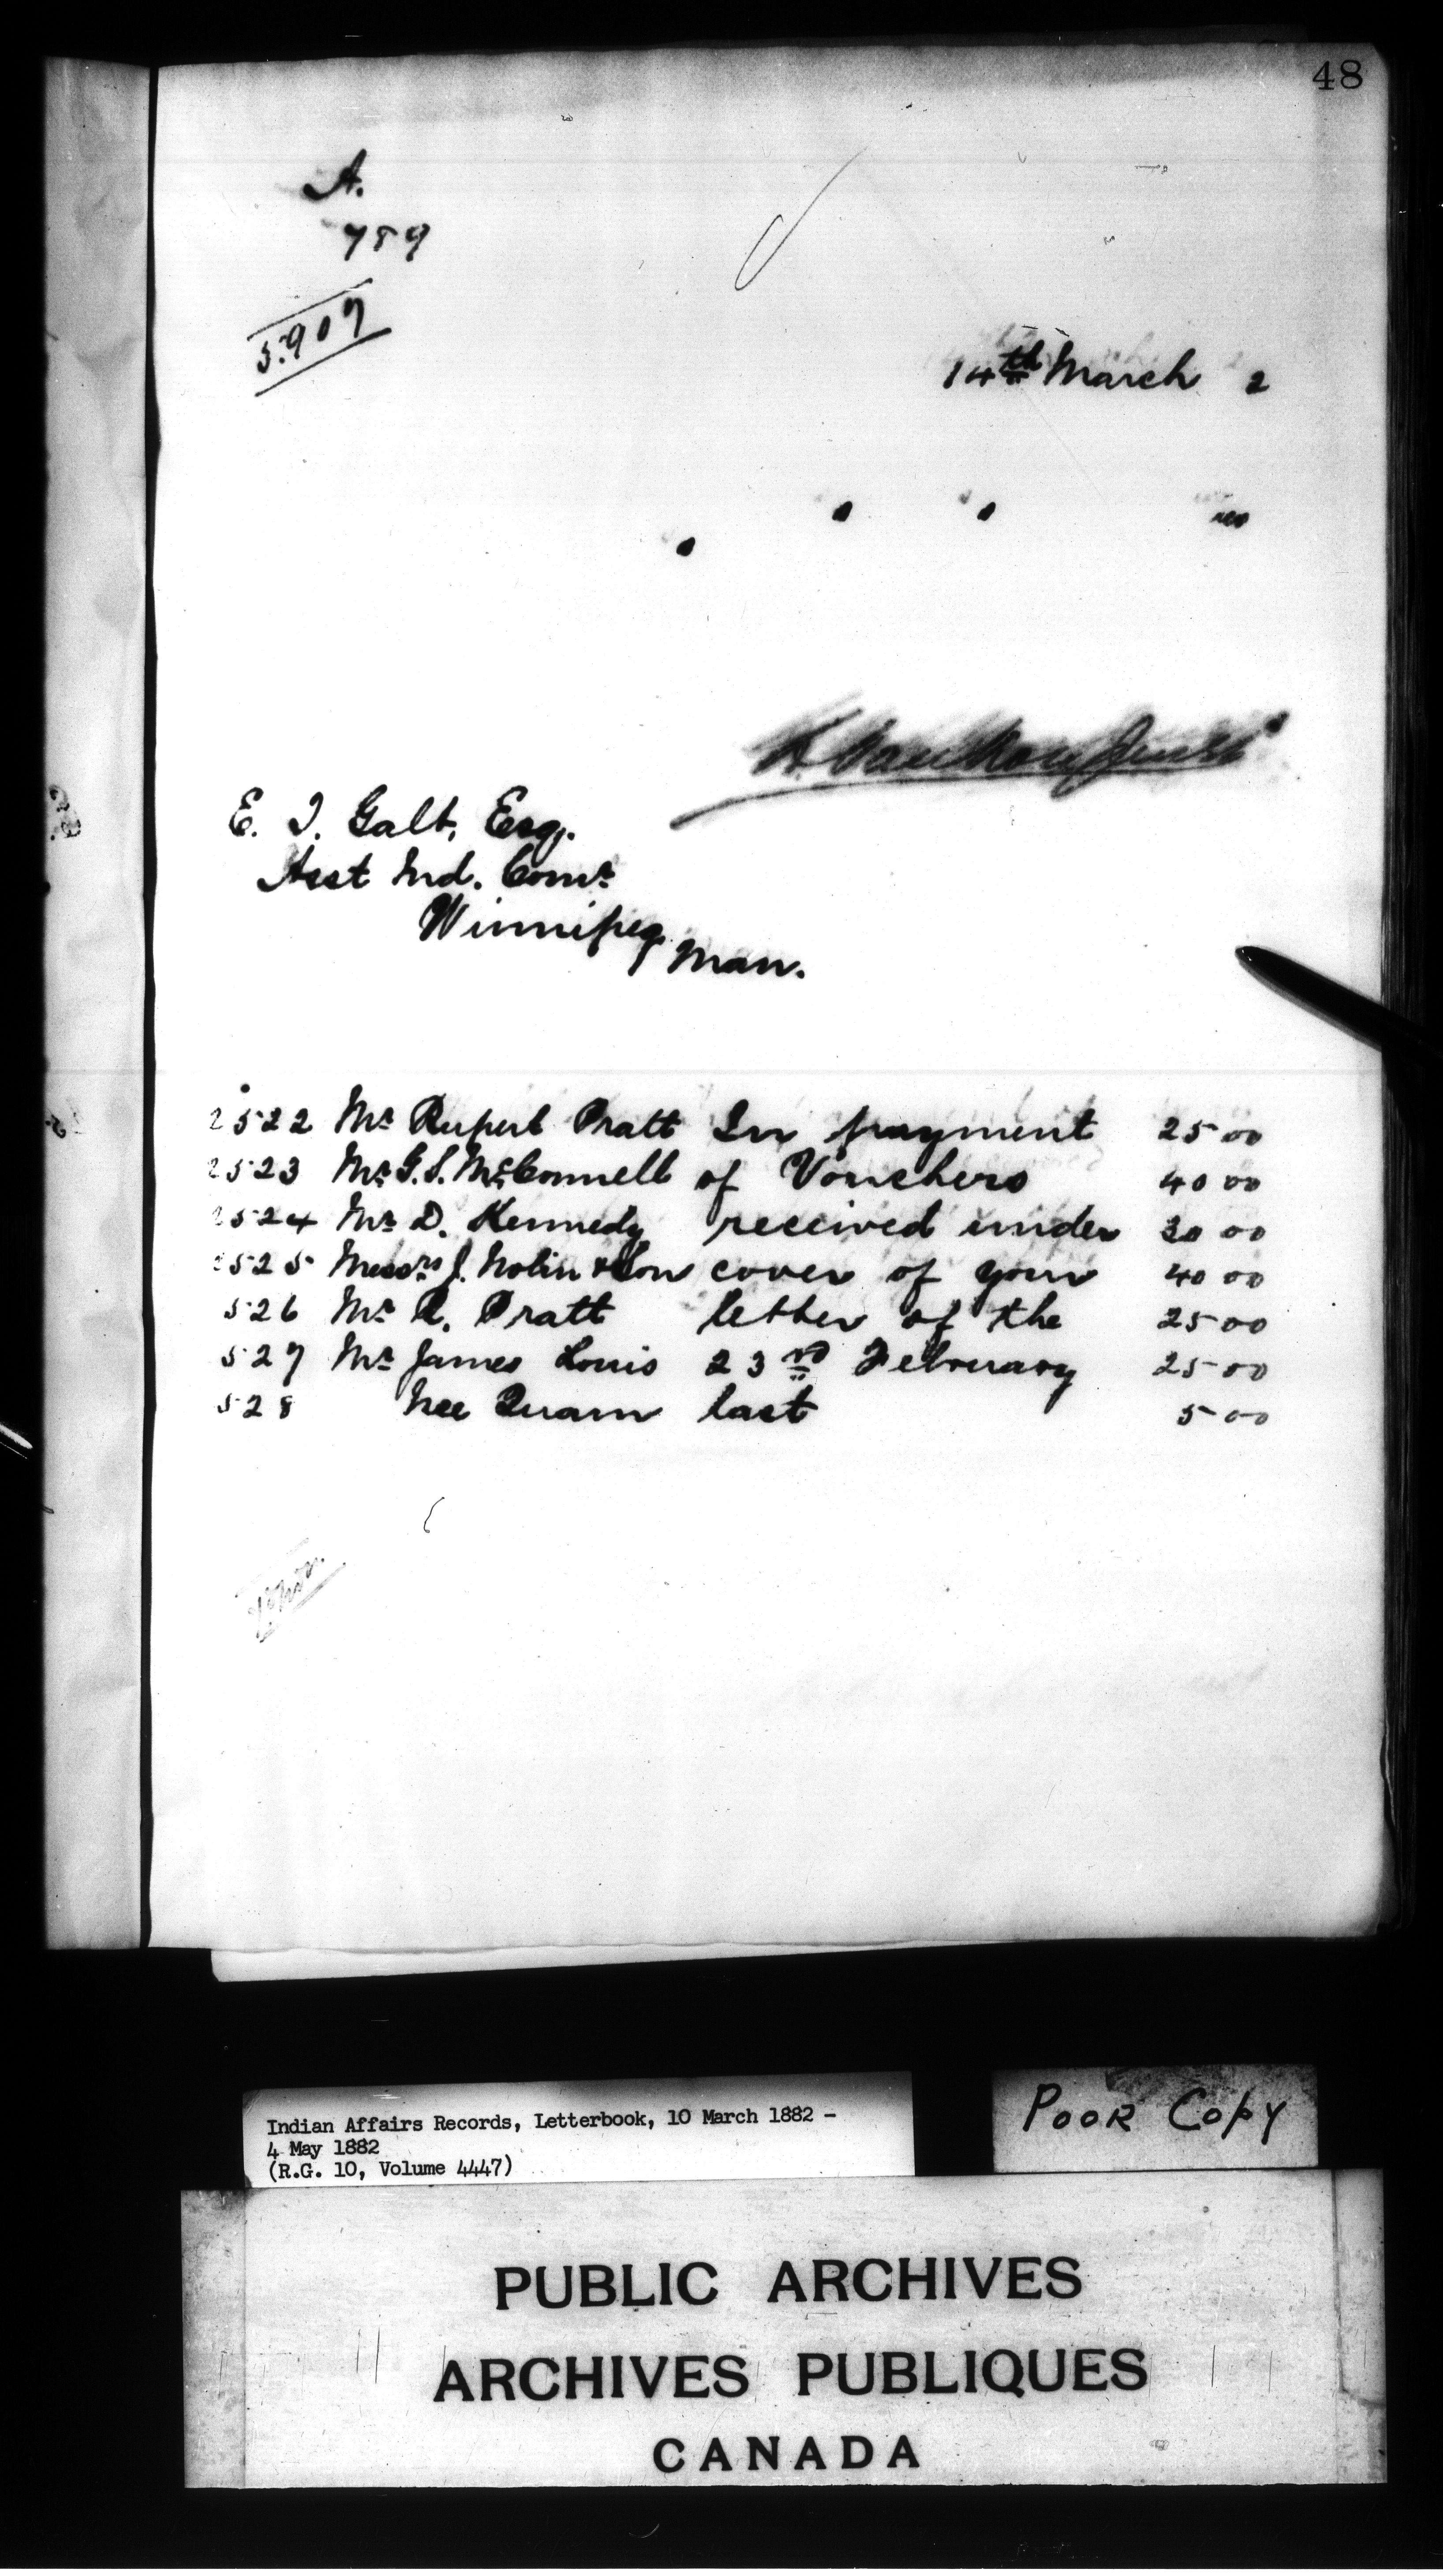 48
A.
789
5.907
14th March 2
L. VanKoughnet
E. T. Galt, Esq.
Asst Ind. Comr
Winnipeg
Man.
2522 Mr Rupert Pratt In payment 25 00
2523 Mr G. S. McConnell of Vouchers 40 00
2524 Mr D. Kennedy received under 30 00
2525 Messrs J. Nolin & Son cover of your 40 00
526 Mr R. Pratt letter of the 25 00
527 Mr James Louis 23rd February 25 00
528 Nee Quam last 5 00
Indian Affairs Records, Letterbook, 10 March 1882 -
4 May 1882
(R.G. 10, Volume 4447)
POOR COPY
PUBLIC ARCHIVES
ARCHIVES PUBLIQUES
CANADA